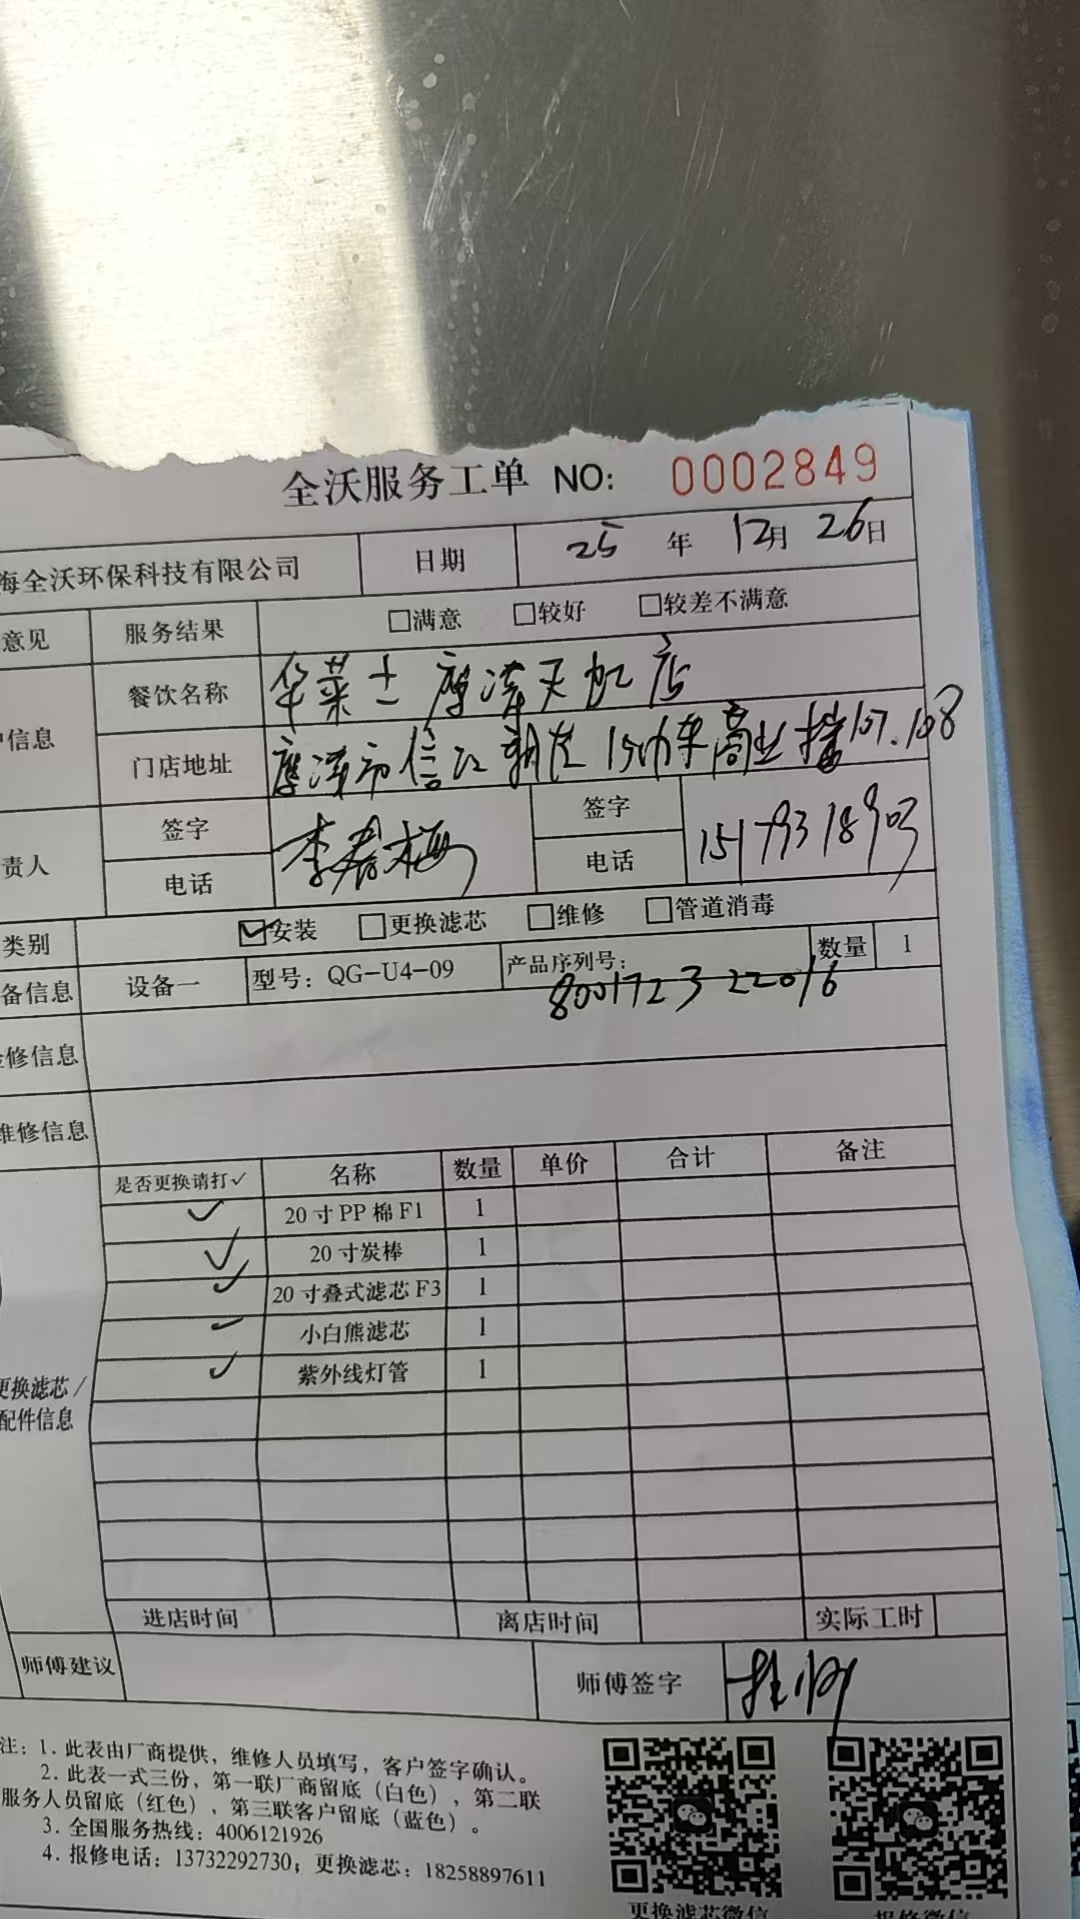 全沃服务工单 NO: 0002849
海全沃环保科技有限公司 日期 25年 12月 26日
意见 服务结果 □满意 □较好 □较差不满意
信息 餐饮名称 华莱士鹰潭天虹店
门店地址 鹰潭市信江 商业楼107.108
责人 签字 李春梅 签字
电话 电话
类别 ☑安装 □更换滤芯 □维修 □管道消毒
备信息 设备一 型号：QG-U4-09 产品序列号： 800172322016 数量 1
修信息
维修信息
是否更换请打✓ 名称 数量 单价 合计 备注
✓ 20寸PP棉F1 1
✓ 20寸炭棒 1
✓ 20寸叠式滤芯F3 1
✓ 小白熊滤芯 1
✓ 紫外线灯管 1
更换滤芯/
配件信息
进店时间 离店时间 实际工时
师傅建议 师傅签字
注：1. 此表由厂商提供，维修人员填写，客户签字确认。
2. 此表一式三份，第一联厂商留底（白色），第二联
服务人员留底（红色），第三联客户留底（蓝色）。
3. 全国服务热线：4006121926
4. 报修电话：13732292730；更换滤芯：18258897611
更换滤芯微信 报修微信